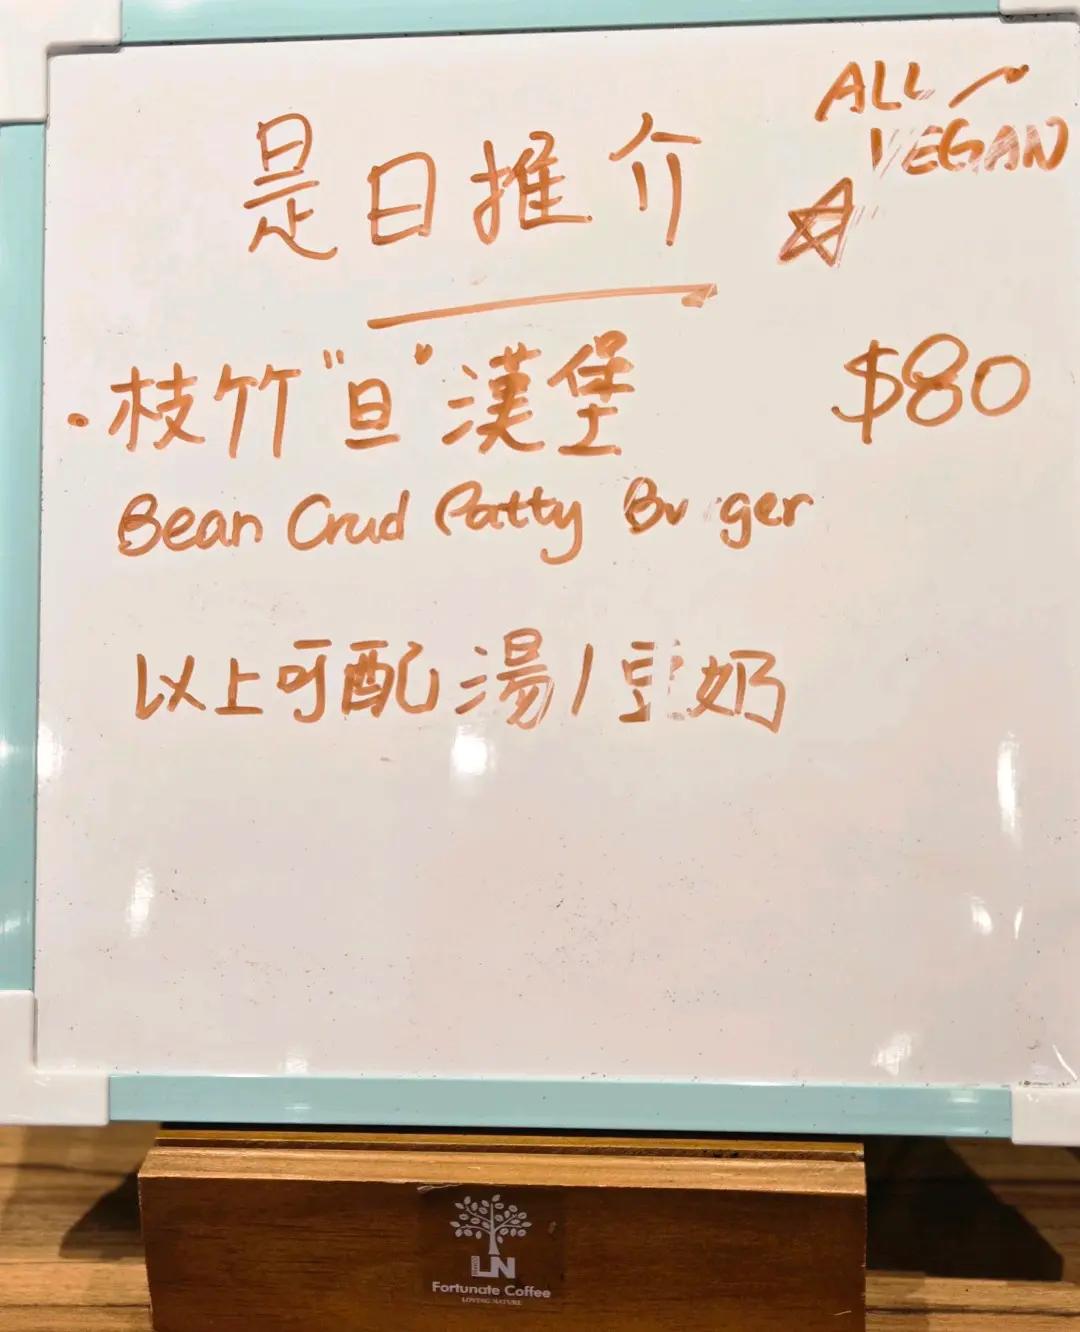 ALL
VEGAN
是日推介
·枝竹"旦"漢堡 $80
Bean Crud Patty Burger
以上可配湯/豆奶
LN
Fortunate Coffee
LOVING NATURE